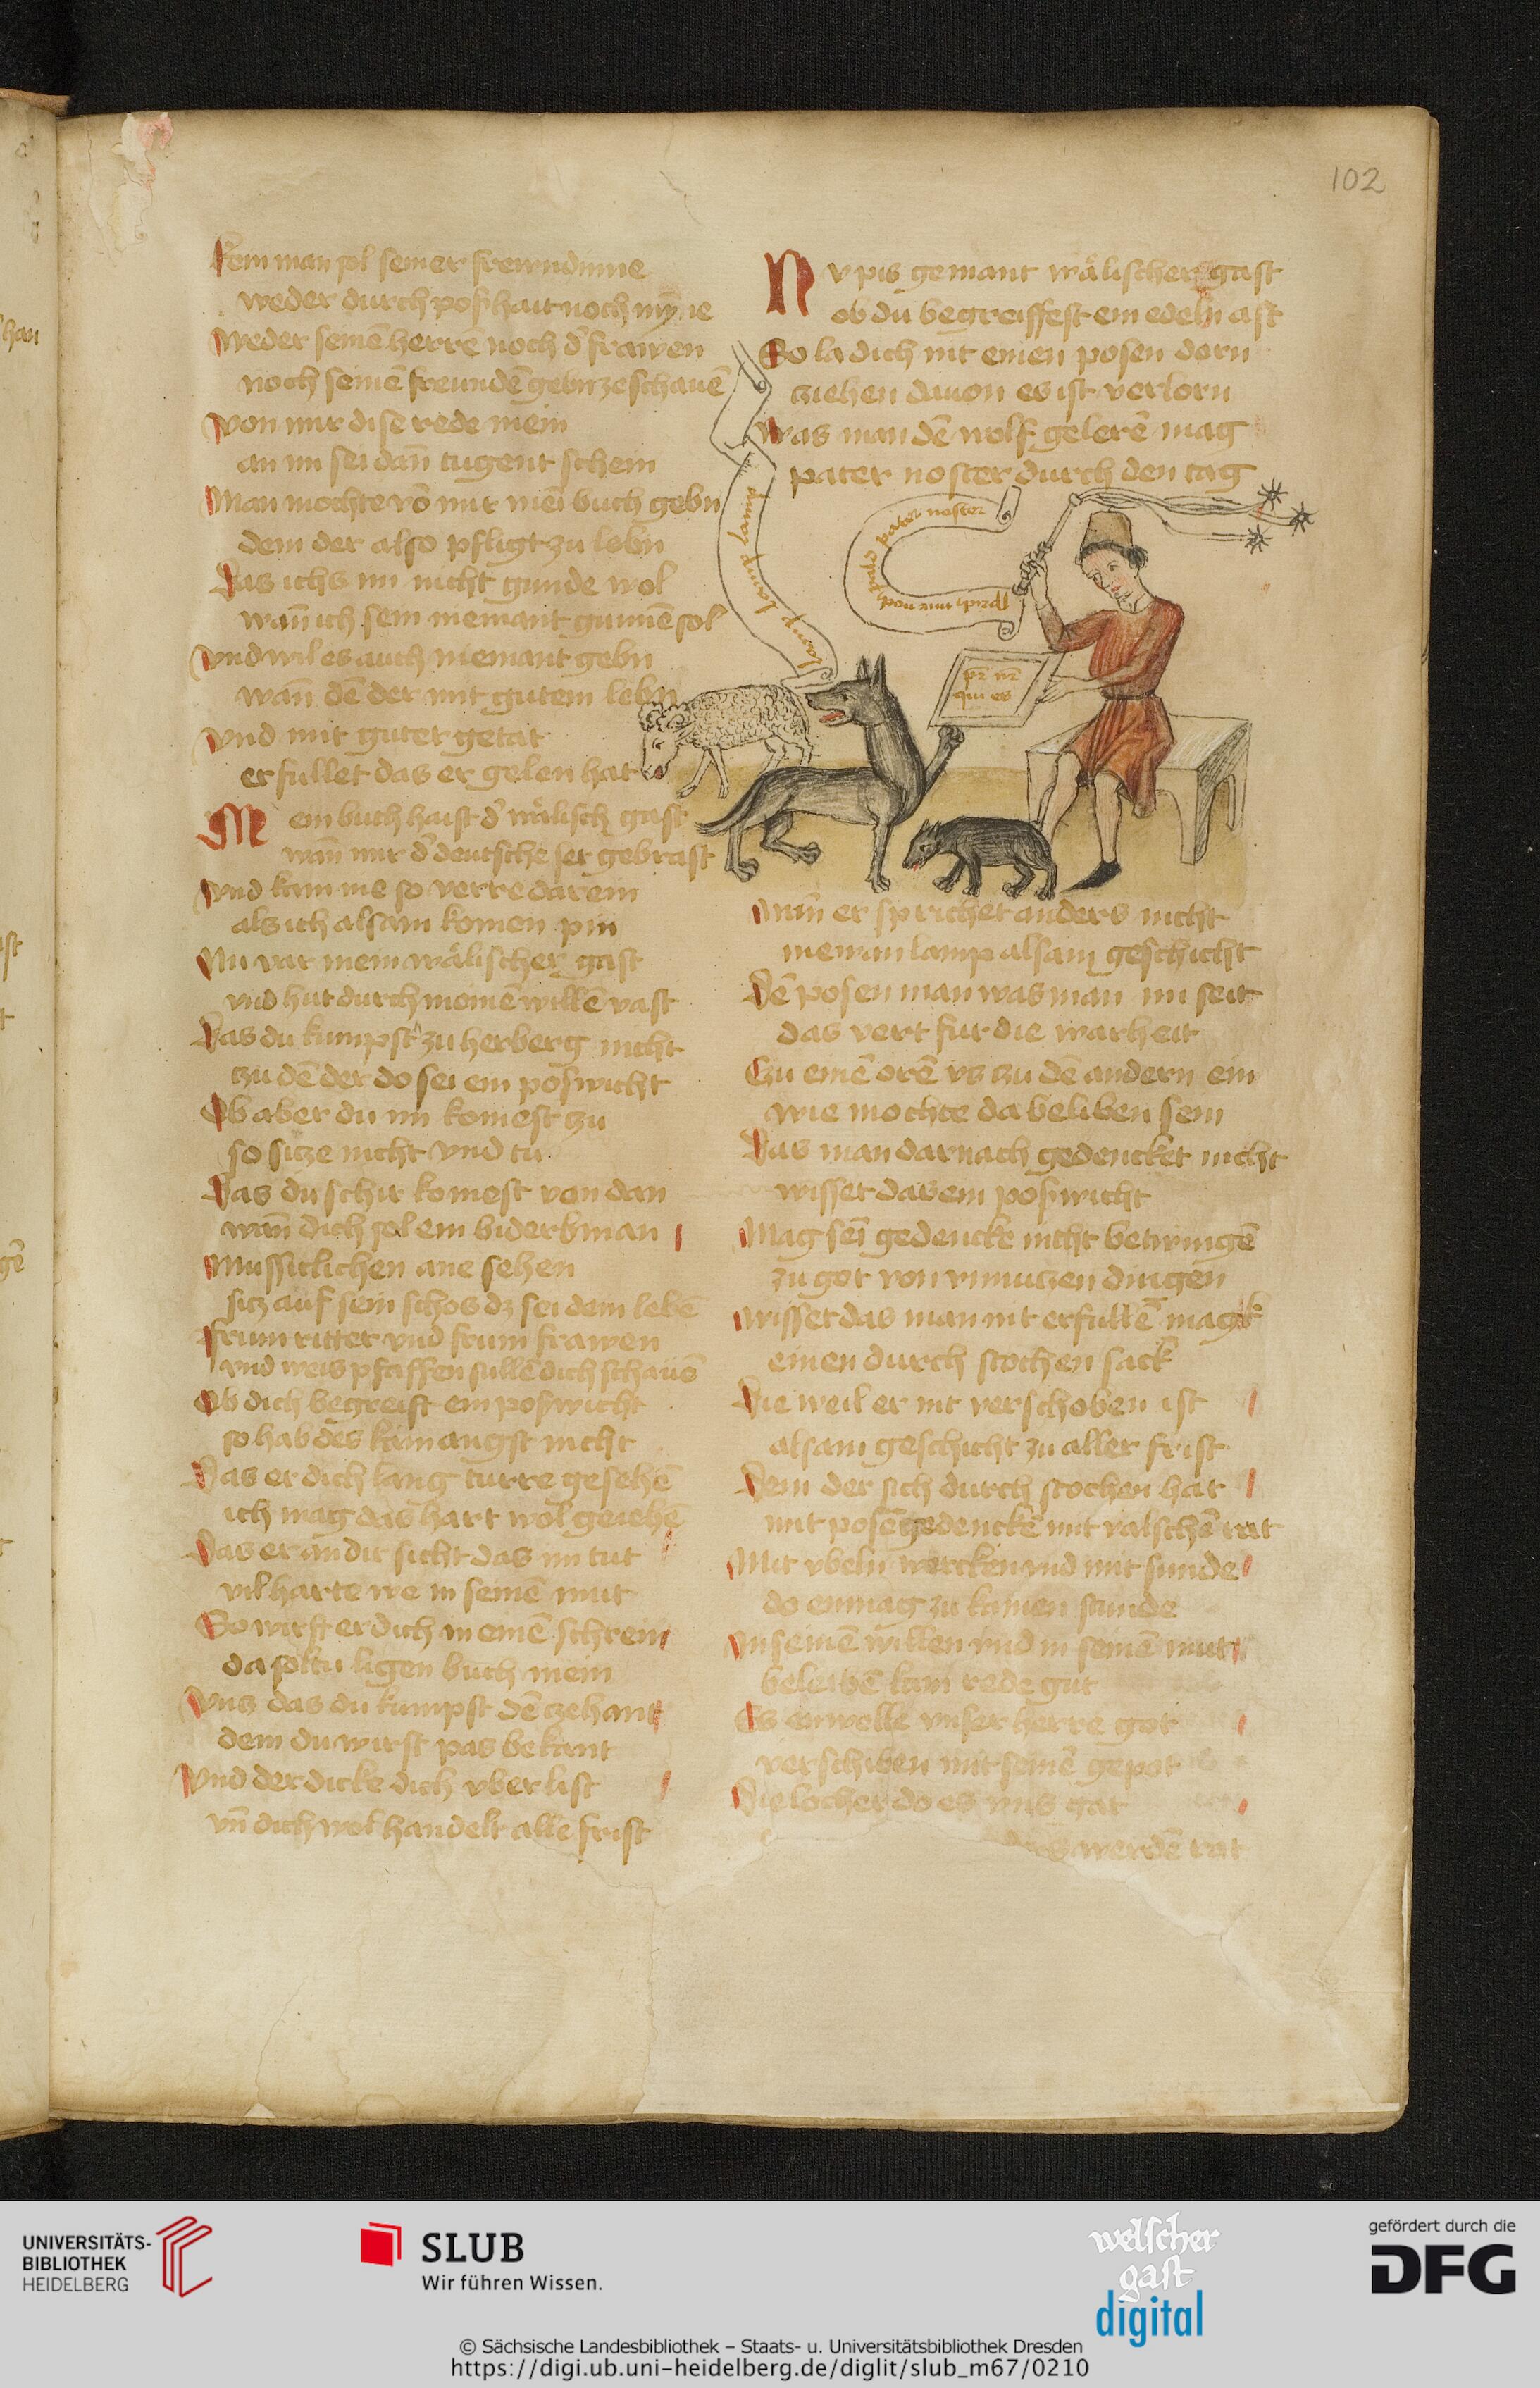 102
kein man sol seiner frewndinne
weder durch poshait noch mynne
weder seinē herrē noch d' frawen
noch seinē freundē gebn ze schauē
von mir dise rede mein
an im sei dañ tugent schein
Man mochte vō mir mei buch gebn
dem der also pfligt zu lebn
Das ichs im nicht gunde wol
wañ ich sein niemant gunnē sol
vnd wil es auch niemant gebn
wañ dē der mit gutem lebn
vnd mit guter getat
erfullet das er gelen hat
Mein buch haist d' wälisch gast
wañ mir d' deutsche ser gebrast
vnd kam nie so verre darein
als ich alsam komen pin
Nu var mein wälischer gast
vnd hut durch meinē willē vast
Das du kumpst zu herberg nicht
tzu dē der do sei ein poswicht
Ob aber du im komest tzu
so sitze nicht vnd tu
Das du schir komest von dan
wañ dich sol ein biderbman
Mussiclichen ane sehen
sitz auf sein schos dz sei dem lebē
frum ritter vnd frum frawen
vnd weis pfaffen sullē dich schauē
Ob dich begreift ein poswicht
so hab des kain angst nicht
Das er dich lang turre gesehē
ich mag das hart wol geiehē
Das er an dir sicht das im tut
vil harte we in seinē mut
So wirft er dich in einē schrein
da soltu ligen buch mein
vntz das du kumpst dē tzehant
dem du wirst pas bekant
vnd der dicke dich vber list
vñ dich wol handelt alle frist
Nv pis gemant wälischer gast
ob du begreiffest ein edeln ast
So la dich nit einen posen dorn
tziehen dauon es ist verlorn
was man dē wolf gelerē mag
pater noster durch den tag
lamp lamp lamp
pater noster
sprich mir noch
pr̄ nr̄
qui es
wañ er sprichet anders nicht
niewan lamp alsam geschicht
Dē posen man was man im seit
das vert fur die warheit
Tzu einē orē vs tzu dē andern ein
wie mochte da beliben sein
Das man darnach gedencket nicht
wisset das ein poswicht
Mag sei gedencke nicht betwingē
zu got von vnnutzen dingen
wisset das man nit erfullē mag
einen durch stochen sack
Die weil er nit verschoben ist
alsam geschicht zu aller frist
Dem der sich durch stochen hat
mit posē gedenckē mit valschē rat
Mit vbeln wercken vnd mit sunde
do enmag zu kainen stunde
In seinē willen vnd in seinē mut
beleibē kain rede gut
Es enwolle vnser herre got
verschiben mit seinē gepot
Die locher do es vns gat
werdē rat
UNIVERSITÄTS-
BIBLIOTHEK
HEIDELBERG
SLUB
Wir führen Wissen.
welscher
gast
digital
gefördert durch die
DFG
© Sächsische Landesbibliothek – Staats- u. Universitätsbibliothek Dresden
https://digi.ub.uni-heidelberg.de/diglit/slub_m67/0210